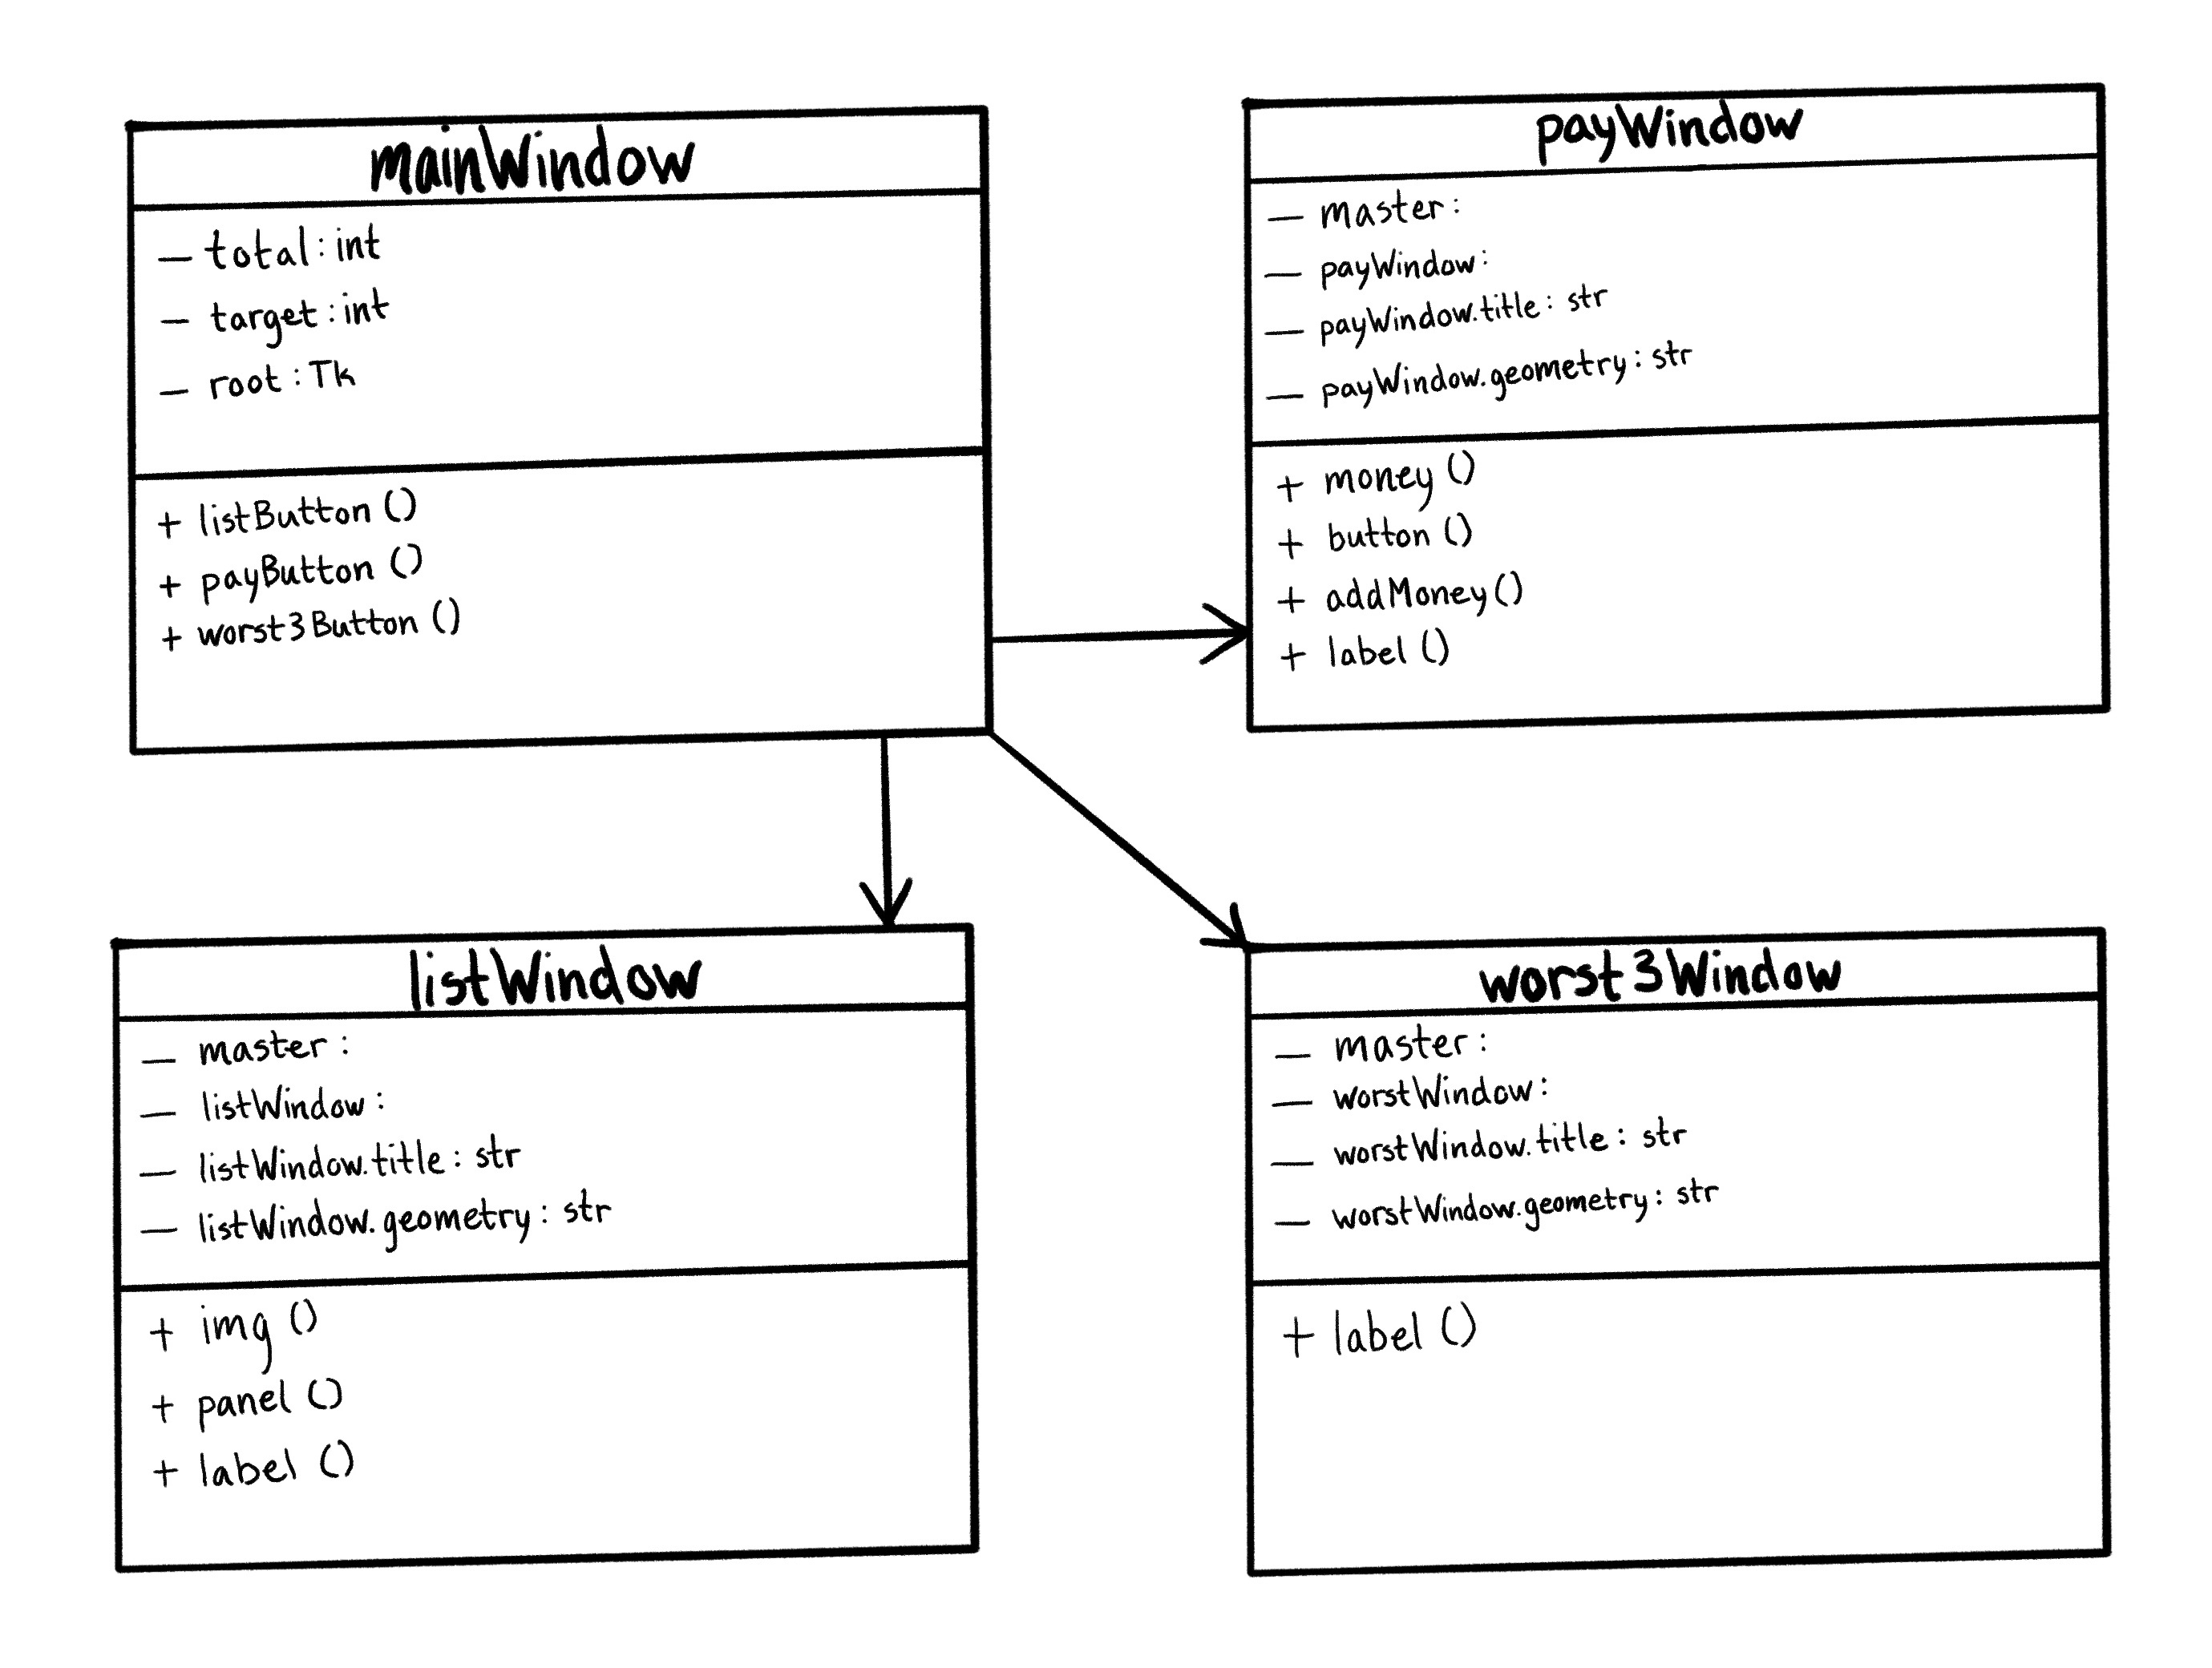 mainWindow
– total: int
– target: int
– root: Tk
+ listButton ()
+ payButton ()
+ worst3Button ()
payWindow
– master:
– payWindow:
– payWindow.title: str
– payWindow.geometry: str
+ money ()
+ button ()
+ addMoney ()
+ label ()
listWindow
– master:
– listWindow:
– listWindow.title: str
– listWindow.geometry: str
+ img ()
+ panel ()
+ label ()
worst3Window
– master:
– worstWindow:
– worstWindow.title: str
– worstWindow.geometry: str
+ label ()